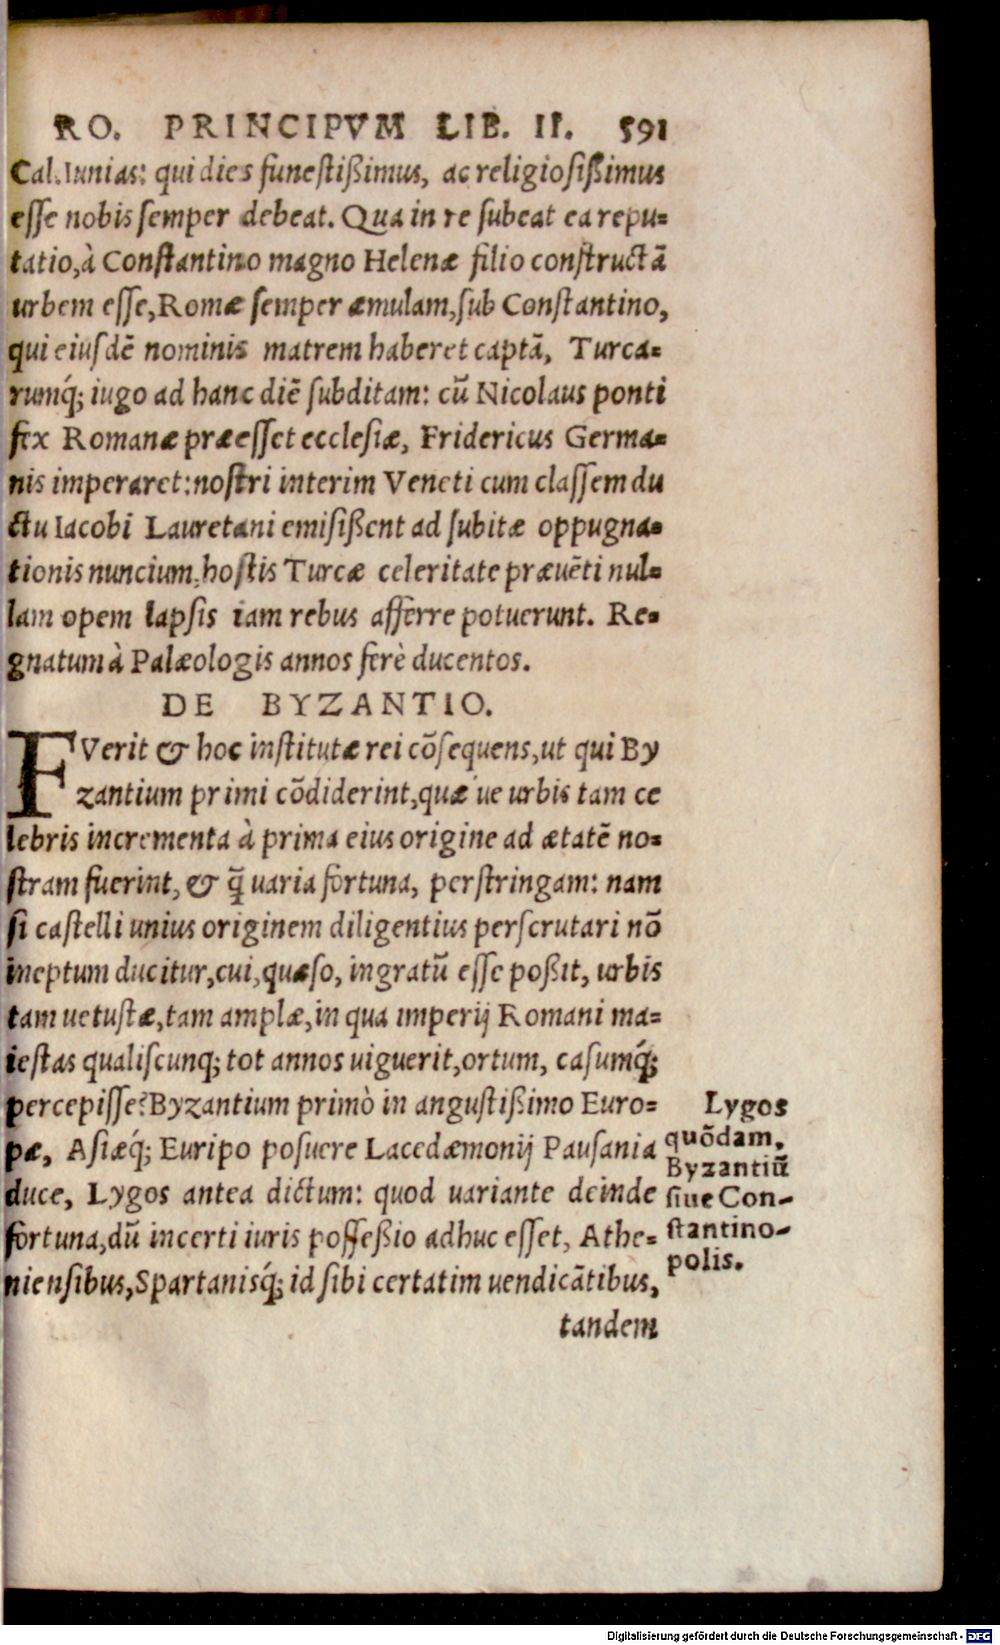 RO. PRINCIPVM LIB. II. 591
Cal. Iunias: qui dies funestißimus, ac religiosißimus
esse nobis semper debeat. Qua in re subeat ea repu=
tatio, à Constantino magno Helenæ filio constructã
urbem esse, Romæ semper æmulam, sub Constantino,
qui eiusdẽ nominis matrem haberet captã, Turca=
rumq́; iugo ad hanc diẽ subditam: cũ Nicolaus ponti
fex Romanæ præesset ecclesiæ, Fridericus Germa=
nis imperaret: nostri interim Veneti cum classem du
ctu Iacobi Lauretani emisißent ad subitæ oppugna=
tionis nuncium, hostis Turcæ celeritate præuẽti nul=
lam opem lapsis iam rebus afferre potuerunt. Re=
gnatum à Palæologis annos ferè ducentos.
DE BYZANTIO.
FVerit & hoc institutæ rei cõsequens, ut qui By
zantium primi cõdiderint, quæ ue urbis tam ce
lebris incrementa à prima eius origine ad ætatẽ no=
stram fuerint, & q̃ uaria fortuna, perstringam: nam
si castelli unius originem diligentius perscrutari nõ
ineptum ducitur, cui, quæso, ingratũ esse poßit, urbis
tam uetustæ, tam amplæ, in qua imperij Romani ma=
iestas qualiscunq; tot annos uiguerit, ortum, casumq́;
percepisse? Byzantium primò in angustißimo Euro=
pæ, Asiæq́; Euripo posuere Lacedæmonij Pausania
duce, Lygos antea dictum: quod uariante deinde
fortuna, dũ incerti iuris posseßio adhuc esset, Athe=
niensibus, Spartanisq́; id sibi certatim uendicãtibus,
tandem
Lygos
quõdam,
Byzantiũ
siue Con-
stantino-
polis.
Digitalisierung gefördert durch die Deutsche Forschungsgemeinschaft - DFG